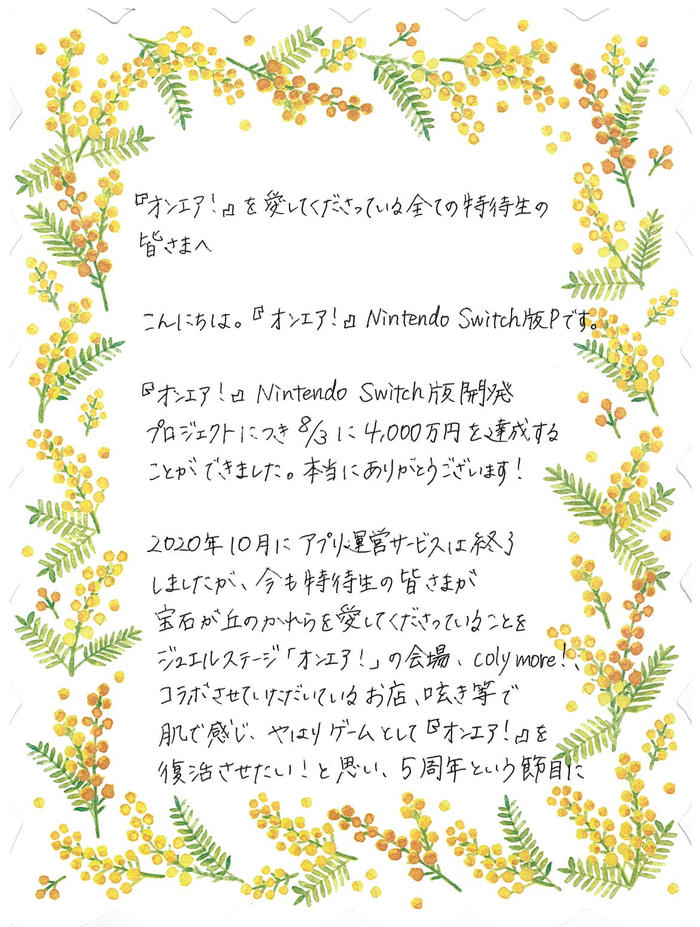 『オンエア！』を愛してくださっている全ての特待生の
皆さまへ
こんにちは。『オンエア！』Nintendo Switch版Pです。
『オンエア！』Nintendo Switch版開発
プロジェクトにつき8/3に4,000万円を達成する
ことができました。本当にありがとうございます！
2020年10月にアプリ運営サービスは終了
しましたが、今も特待生の皆さまが
宝石が丘のかれらを愛してくださっていることを
ジュエルステージ「オンエア！」の会場、coly more!、
コラボさせていただいているお店、呟き等で
肌で感じ、やはりゲームとして『オンエア！』を
復活させたい！と思い、5周年という節目に